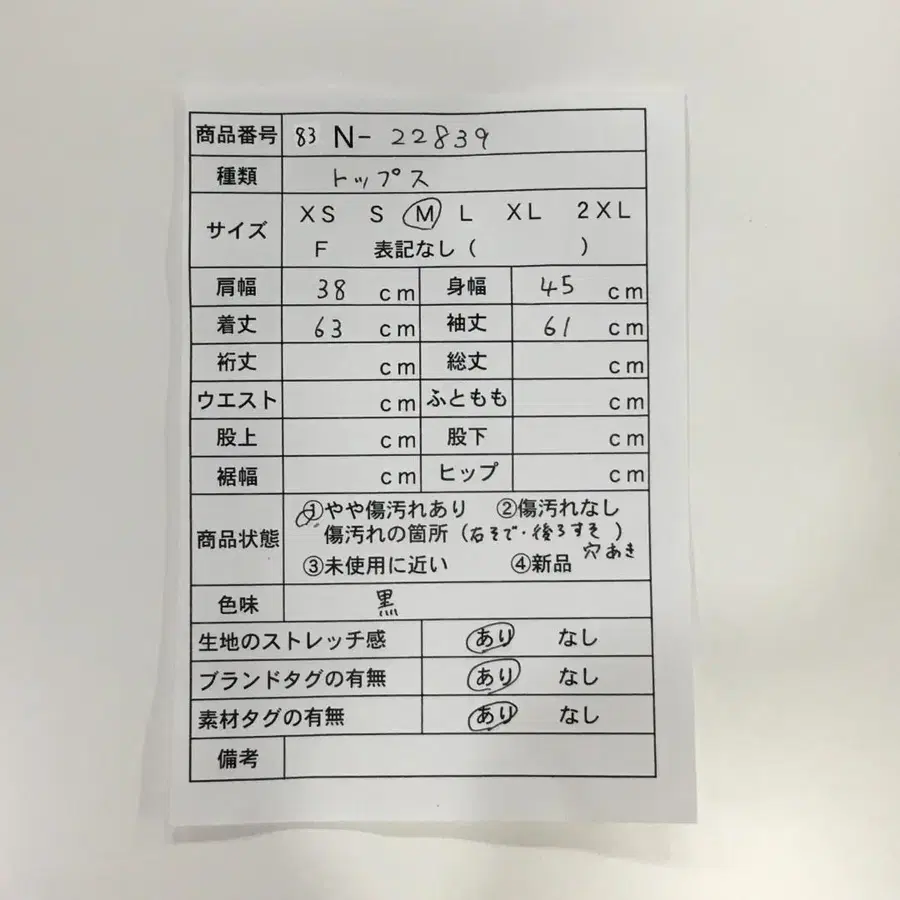 商品番号 83 N- 22839
種類 トップス
サイズ XS S M L XL 2XL
F 表記なし ( )
肩幅 38 cm 身幅 45 cm
着丈 63 cm 袖丈 61 cm
裄丈 cm 総丈 cm
ウエスト cm ふともも cm
股上 cm 股下 cm
裾幅 cm ヒップ cm
商品状態 ①やや傷汚れあり ②傷汚れなし
傷汚れの箇所 (右そで・後ろすそ )
穴あき
③未使用に近い ④新品
色味 黒
生地のストレッチ感 あり なし
ブランドタグの有無 あり なし
素材タグの有無 あり なし
備考